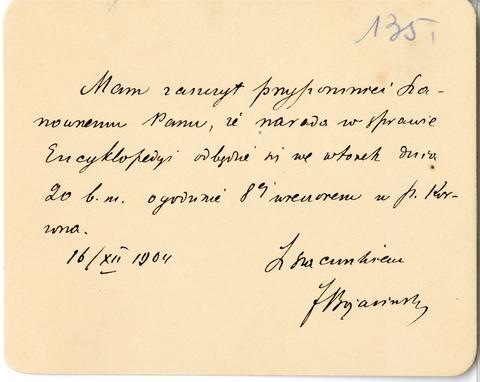 135
Mam zaszczyt przypomnieć Sza-
nownemu Panu, iż narada w sprawie
Encyklopedyi odbędzie się we wtorek dnia
20 b.m. o godzinie 8ej wieczorem u p. Kor-
wina.
16/XII 1904
Z szacunkiem